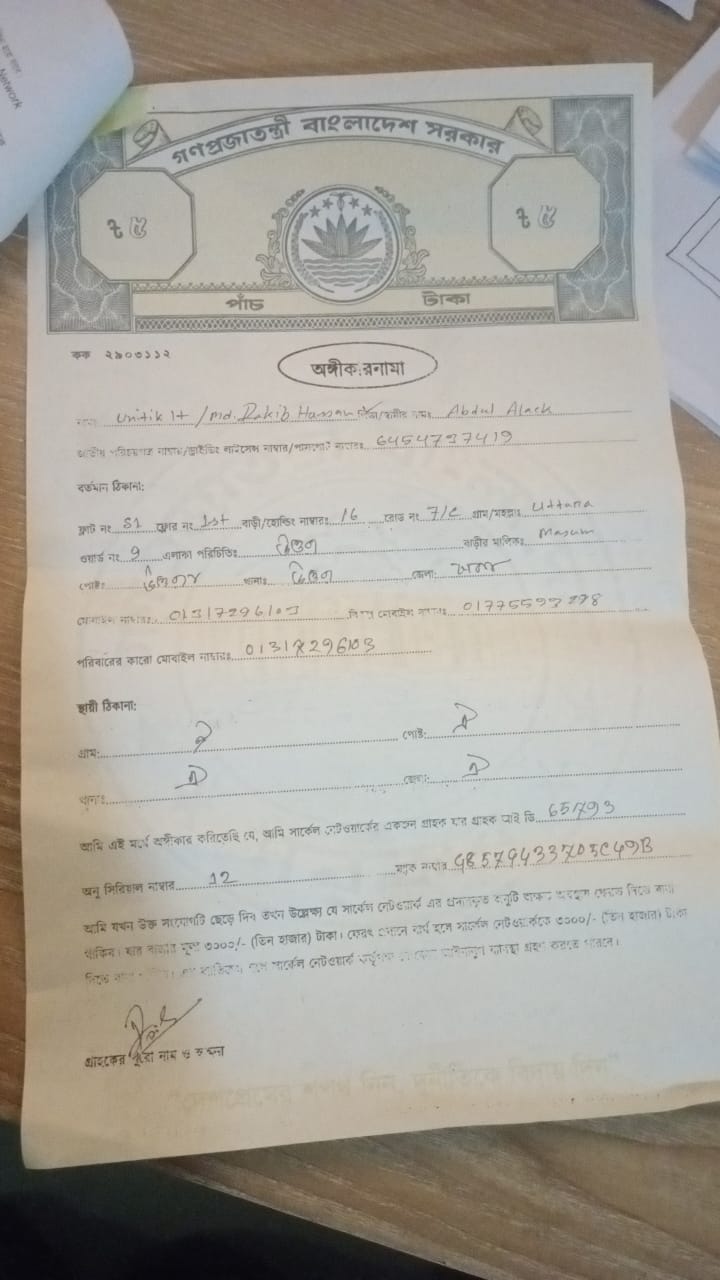 Network
গণপ্রজাতন্ত্রী বাংলাদেশ সরকার
৳ ৫ ৳ ৫
পাঁচ টাকা
কক ২৯০৩১১২
অঙ্গীকারনামা
Unitik It / Md. Rakib Hassan পিতা/স্বামীর নামঃ Abdul Alack
জাতীয় পরিচয়পত্র নাম্বার/ড্রাইভিং লাইসেন্স নাম্বার/পাসপোর্ট নাম্বারঃ 6454737419
বর্তমান ঠিকানা:
ফ্লাট নং S1 ফ্লোর নং 1st বাড়ী/হোল্ডিং নাম্বারঃ 16 রোড নং 7/C গ্রাম/মহল্লাঃ Uttara
ওয়ার্ড নং 9 এলাকা পরিচিতিঃ বাড়ীর মালিকঃ Masum
পোষ্টঃ থানাঃ জেলাঃ
মোবাইল নাম্বারঃ 01317296103 বিকল্প মোবাইল নাম্বারঃ 01775593278
পরিবারের কারো মোবাইল নাম্বারঃ 01317296103
স্থায়ী ঠিকানা:
গ্রাম: ঐ পোষ্ট: ঐ
থানাঃ ঐ জেলা: ঐ
আমি এই মর্মে অঙ্গীকার করিতেছি যে, আমি সার্কেল নেটওয়ার্কের একজন গ্রাহক যার গ্রাহক আই ডি 651793
অনু সিরিয়াল নাম্বার 12 ম্যাক নাম্বার 48579433705C49B
আমি যখন উক্ত সংযোগটি ছেড়ে দিব তখন উল্লেক্ষ্য যে সার্কেল নেটওয়ার্ক এর প্রদানকৃত অনুটি ফেরত দিতে বাধ্য
থাকিব। যার বাজার মূল্য ৩০০০/- (তিন হাজার) টাকা। ফেরৎ প্রদানে ব্যর্থ হলে সার্কেল নেটওয়ার্ককে ৩০০০/- (তিন হাজার) টাকা
দিতে সার্কেল নেটওয়ার্ক কর্তৃপক্ষ আইনানুগ ব্যবস্থা গ্রহণ করতে পারবে।
গ্রাহকের পুরো নাম ও
"দেশপ্রেমের শপথ নিন, দুর্নীতিকে বিদায় দিন"